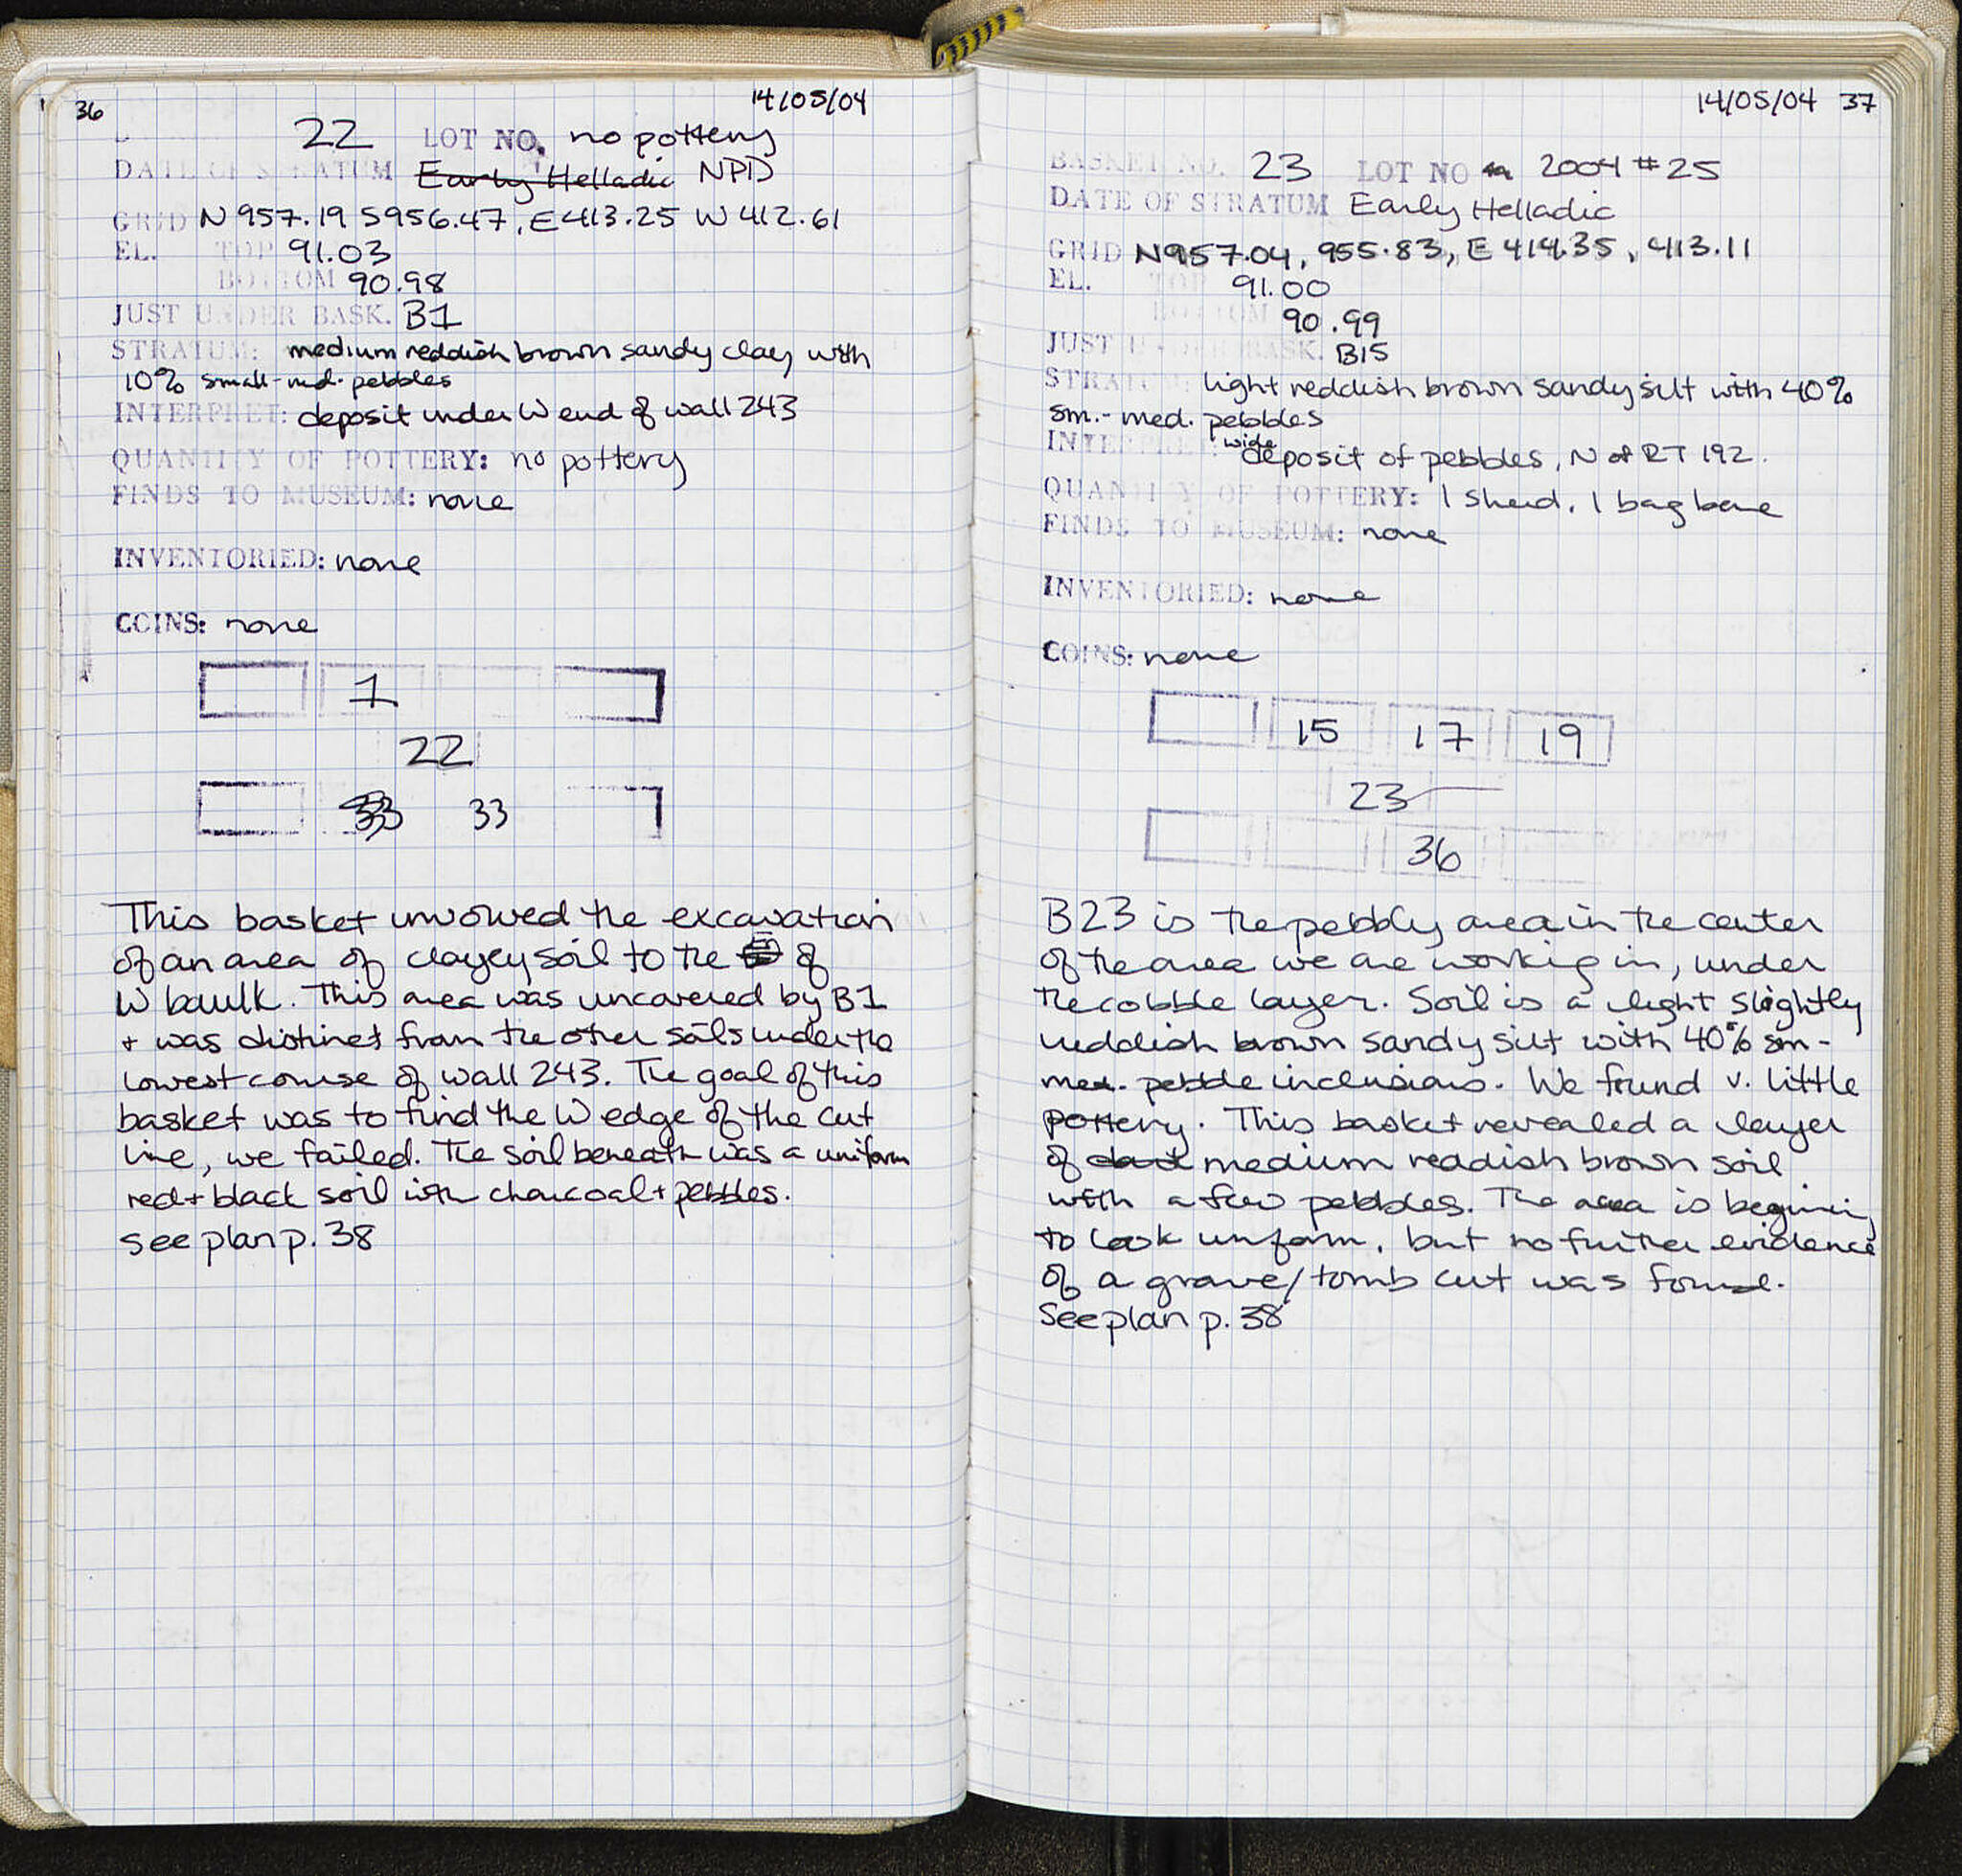 36
14/05/04
22 LOT NO. no pottery
DATE OF STRATUM Early Helladic NPD
GRID N 957.19 S956.47, E413.25 W 412.61
EL. TOP 91.03
BOTTOM 90.98
JUST UNDER BASK. B1
STRATUM: medium reddish brown sandy clay with
10% small-md. pebbles
INTERPRET: deposit under W end of wall 243
QUANTITY OF POTTERY: no pottery
FINDS TO MUSEUM: none
INVENTORIED: none
COINS: none
1
22
33 33
This basket involved the excavation
of an area of clayey soil to the of
W baulk. This area was uncovered by B1
+ was distinct from the other soils under the
lowest course of wall 243. The goal of this
basket was to find the W edge of the cut
line, we failed. The soil beneath was a uniform
red + black soil with charcoal + pebbles.
see plan p. 38
14/05/04 37
BASKET NO. 23 LOT NO 2004 #25
DATE OF STRATUM Early Helladic
GRID N957.04, 955.83, E 414.35, 413.11
EL. TOP 91.00
BOTTOM 90.99
JUST UNDER BASK. B15
STRATUM: light reddish brown sandy silt with 40%
sm.- med. pebbles
INTERPRET: wide deposit of pebbles, N of RT 192.
QUANTITY OF POTTERY: 1 sherd, 1 bag bone
FINDS TO MUSEUM: none
INVENTORIED: none
COINS: none
15 17 19
23
36
B23 is the pebbly area in the center
of the area we are working in, under
the cobble layer. Soil is a light slightly
reddish brown sandy silt with 40% sm-
med. pebble inclusions. We found v. little
pottery. This basket revealed a layer
of dark medium readish brown soil
with a few pebbles. The area is beginning
to look uniform, but no further evidence
of a grave/tomb cut was found.
See plan p. 38